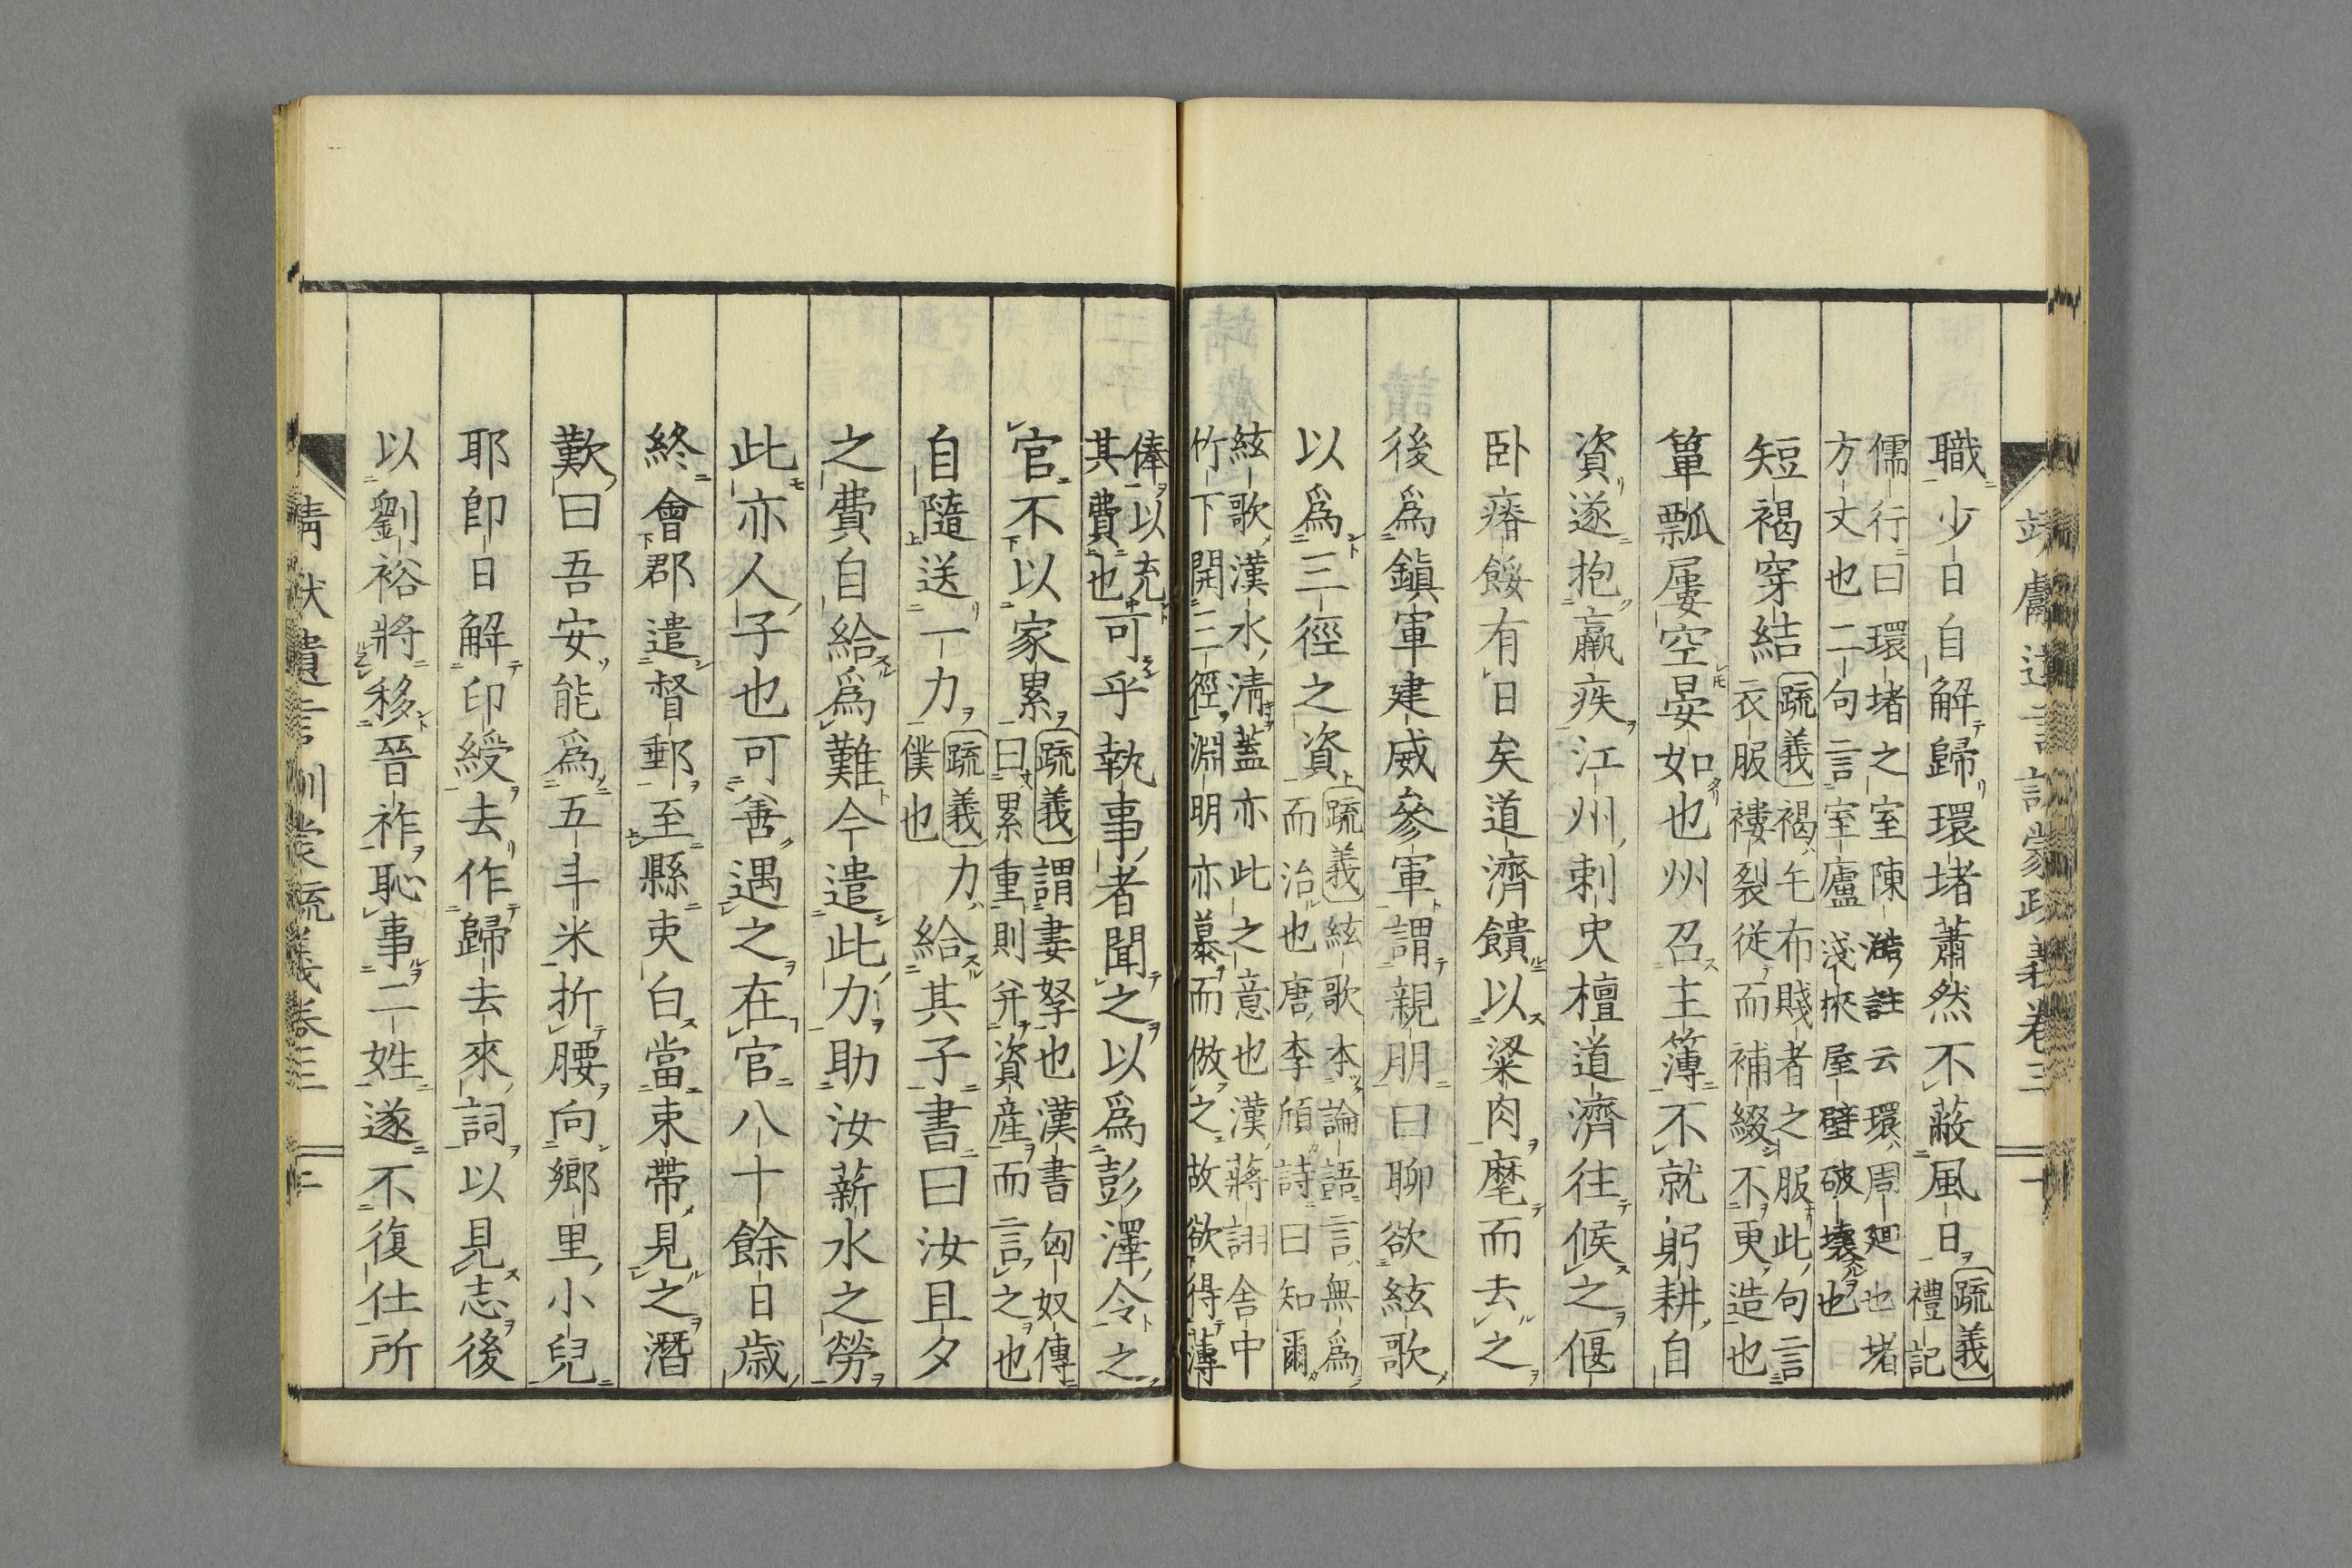 靖獻遺言訓蒙疏義卷三
職少日自解歸環堵蕭然不蔽風日 疏義 禮記
儒行曰環堵之室陳澔註云環周廻也堵
方丈也二句言室廬淺狹屋壁破壞也
短褐穿結 疏義 褐乇布賤者之服此句言
衣服褸裂從而補綴不更造也
簞瓢屢空晏如也州召主簿不就躬耕自
資遂抱羸疾江州刺史檀道濟往候之偃
卧瘠餒有日矣道濟饋以粱肉麾而去之
後爲鎭軍建威參軍謂親朋曰聊欲絃歌
以爲三徑之資 疏義 絃歌本論語言無爲
而治也唐李頎詩曰知爾
絃歌漢水淸蓋亦此之意也漢蔣詡舍中
竹下開三徑淵明亦慕而倣之故欲得薄
俸以充
其費也 可乎執事者聞之以爲彭澤令之
官不以家累 疏義 謂妻孥也漢書匈奴傳
曰累重則幷資産而言之也
自隨送一力 疏義 力
僕也 給其子書曰汝且夕
之費自給爲難今遣此力助汝薪水之勞
此亦人子也可善遇之在官八十餘日歳
終會郡遣督郵至縣吏白當束帶見之潛
歎曰吾安能爲五斗米折腰向鄉里小兒
耶卽日解印綬去作歸去來詞以見志後
以劉裕將移晉祚恥事二姓遂不復仕所
靖獻遺言訓蒙疏義卷三 二